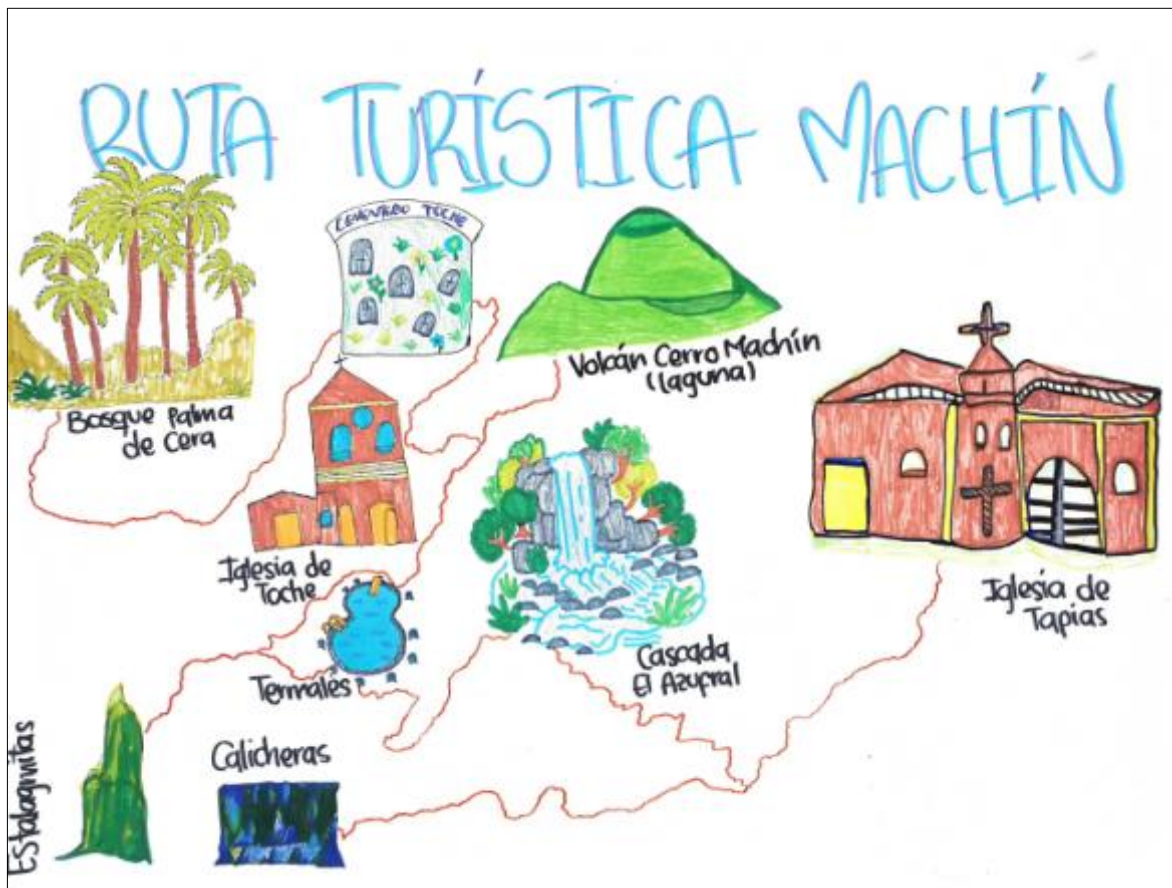 RUTA TURÍSTICA MACHÍN
CEMENTERIO TOCHE
Bosque Palma
de Cera
Volcán Cerro Machín
(laguna)
Iglesia de
Toche
Iglesia de
Tapias
Cascada
El Azufral
Termales
Calicheras
Estalagmitas